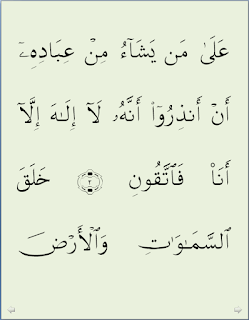 عَلَىٰ مَن يَشَآءُ مِنْ عِبَادِهِۦٓ
أَنْ أَنذِرُوٓا۟ أَنَّهُۥ لَآ إِلَـٰهَ إِلَّآ
أَنَا۠ فَٱتَّقُونِ ۝٢ خَلَقَ
ٱلسَّمَـٰوَٰتِ وَٱلْأَرْضَ